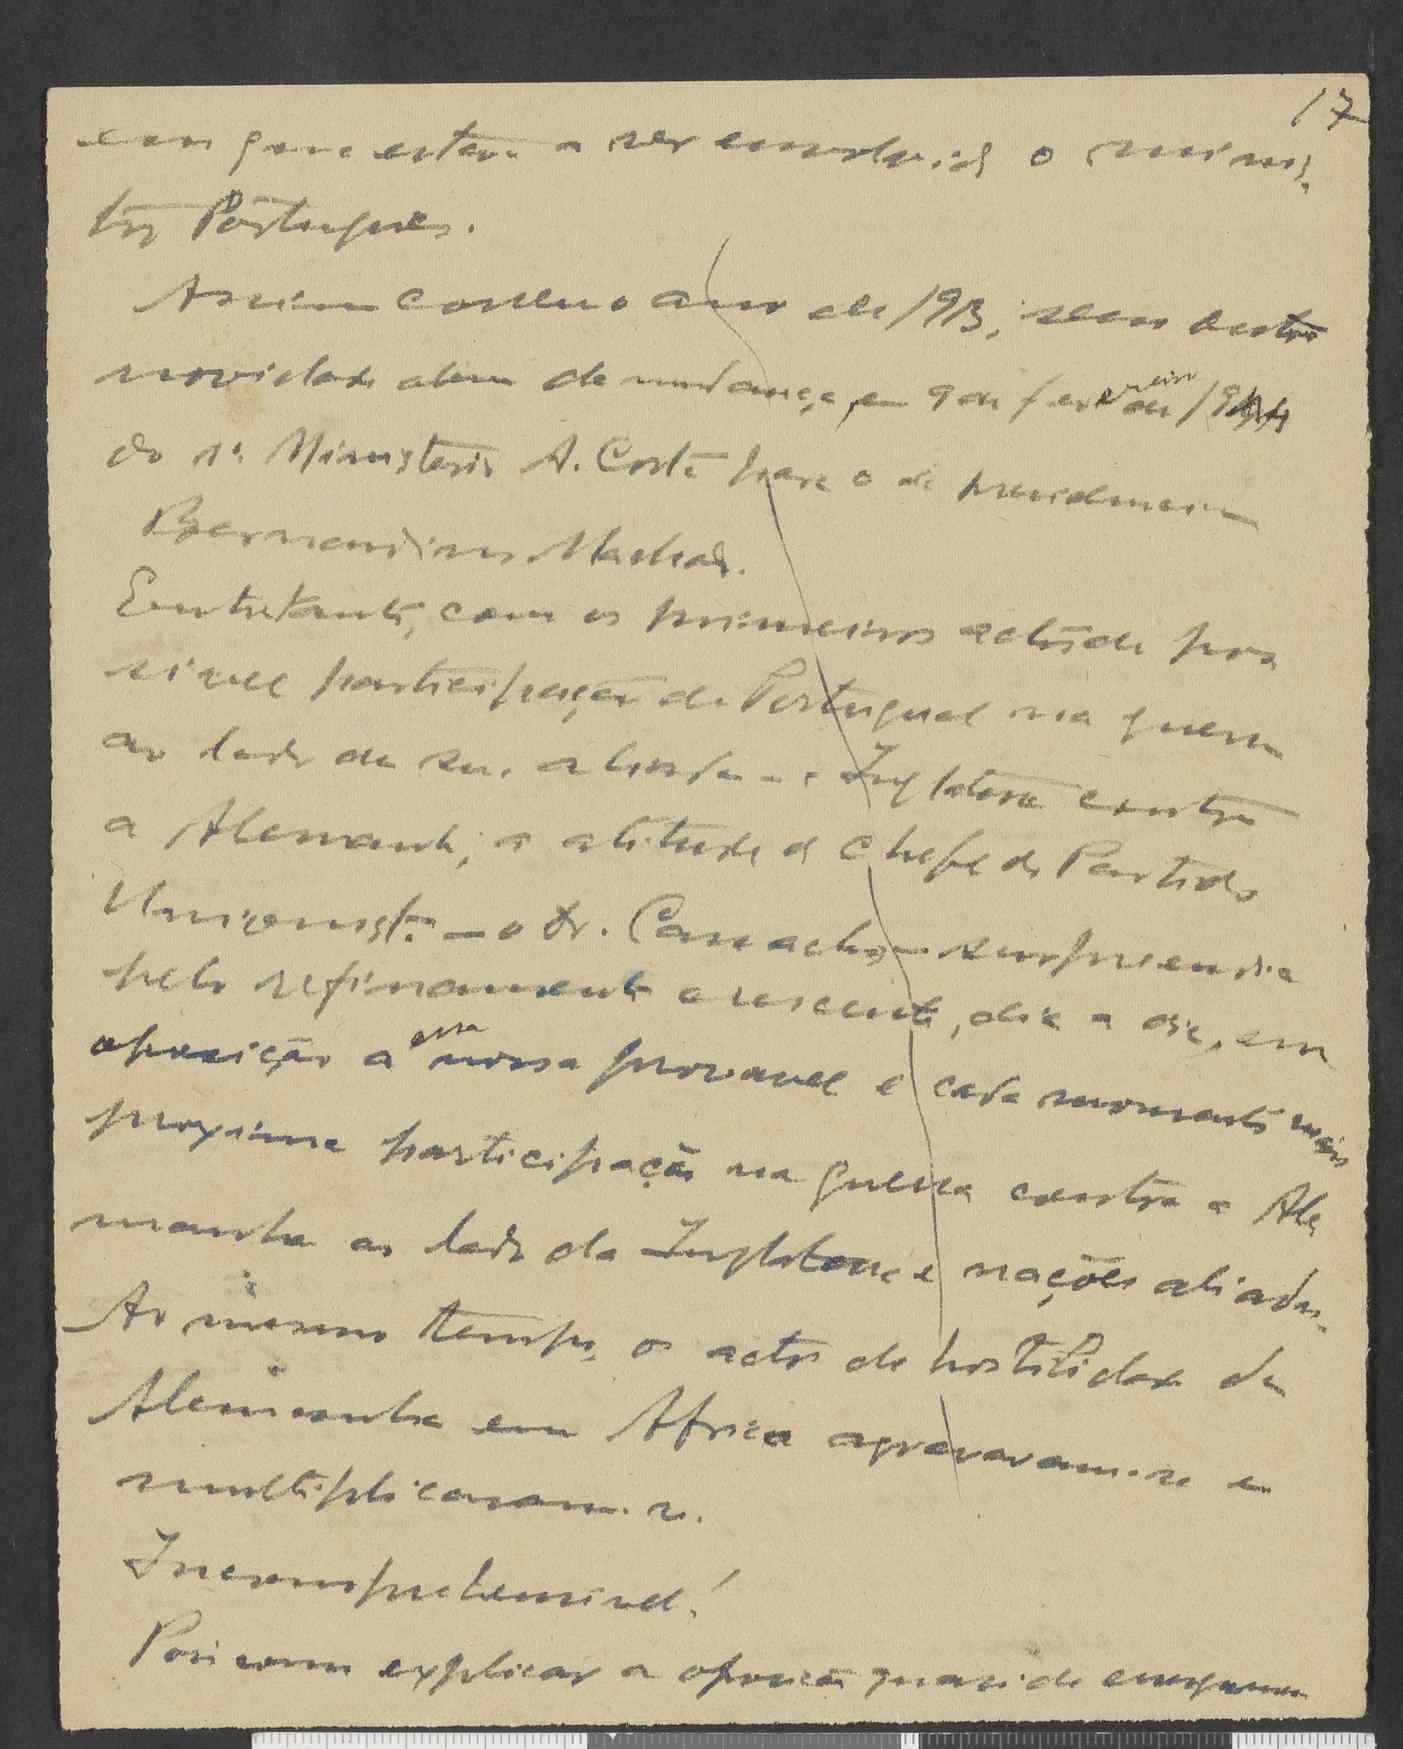 17
em que estava a ser envolvido o minis-
tro Português.
Assim correu o ano de 1913, sem outra
novidade alem da mudança, em 9 de fevereiro de 1914
do 1º Ministerio A. Costa para o da presidencia
Bernardino Machado.
Entretanto, com os primeiros actos de pos
sivel participação de Portugal na guerra
ao lado da sua aliada - a Inglaterra contra
a Alemanha, a atitude do chefe do Partido
Unionista - o Dr. Camacho - surpreendia
pelo refinamento crescente, dia a dia, em
oposição a essa nossa provavel e cada momento mais
proxima participação na guerra contra a Ale
manha ao lado da Inglaterra e nações aliadas.
Ao mesmo tempo, os actos de hostilidade da
Alemanha em Africa agravavam-se e
multiplicavam-se.
Incomprehensivel!
Pois como explicar a oposição quasi de